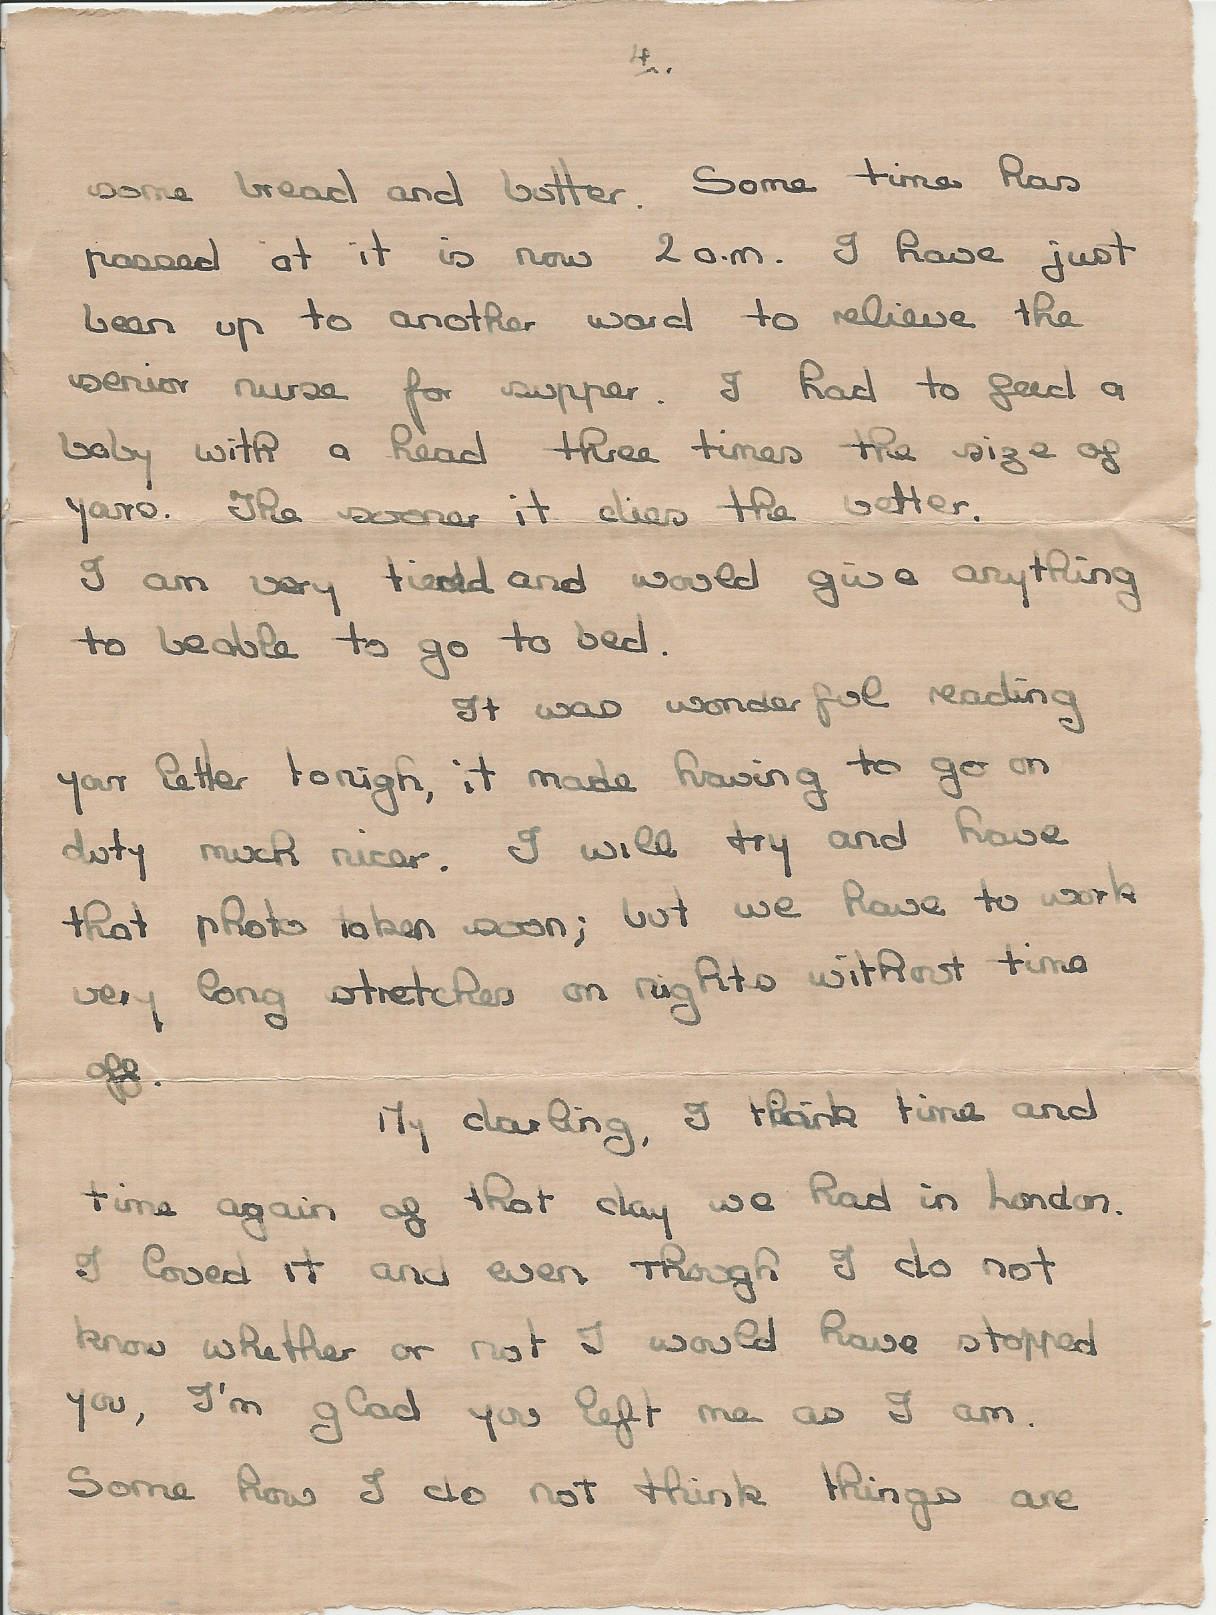 4.
some bread and butter. Some time has
passed at it is now 2 a.m. I have just
been up to another ward to relieve the
senior nurse for supper. I had to feed a
baby with a head three times the size of
yars. The sooner it dies the better.
I am very tired and would give anything
to beable to go to bed.
It was wonderful reading
your letter tonigh, it made having to go on
duty much nicer. I will try and have
that photo taken soon; but we have to work
very long stretches on nights without time
off.
My darling, I think time and
time again of that day we had in London.
I loved it and even though I do not
know whether or not I would have stopped
you, I'm glad you left me as I am.
Some how I do not think things are